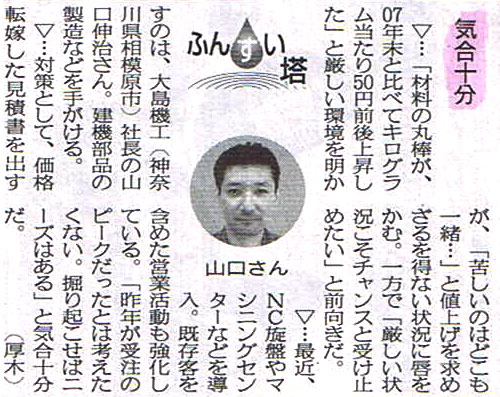 ふんすい塔
気合十分
▽…「材料の丸棒が、
07年末と比べてキログラ
ム当たり50円前後上昇し
た」と厳しい環境を明か
すのは、大島機工(神奈
川県相模原市)社長の山
口伸治さん。建機部品の
製造などを手がける。
▽…対策として、価格
転嫁した見積書を出す
が、「苦しいのはどこも
一緒…」と値上げを求め
ざるを得ない状況に唇を
かむ。一方で「厳しい状
況こそチャンスと受け止
めたい」と前向きだ。
▽…最近、
NC旋盤やマ
シニングセン
ターなどを導
入。既存客を
含めた営業活動も強化し
ている。「昨年が受注の
ピークだったとは考えた
くない。掘り起こせばニ
ーズはある」と気合十分
だ。 (厚木)
山口さん